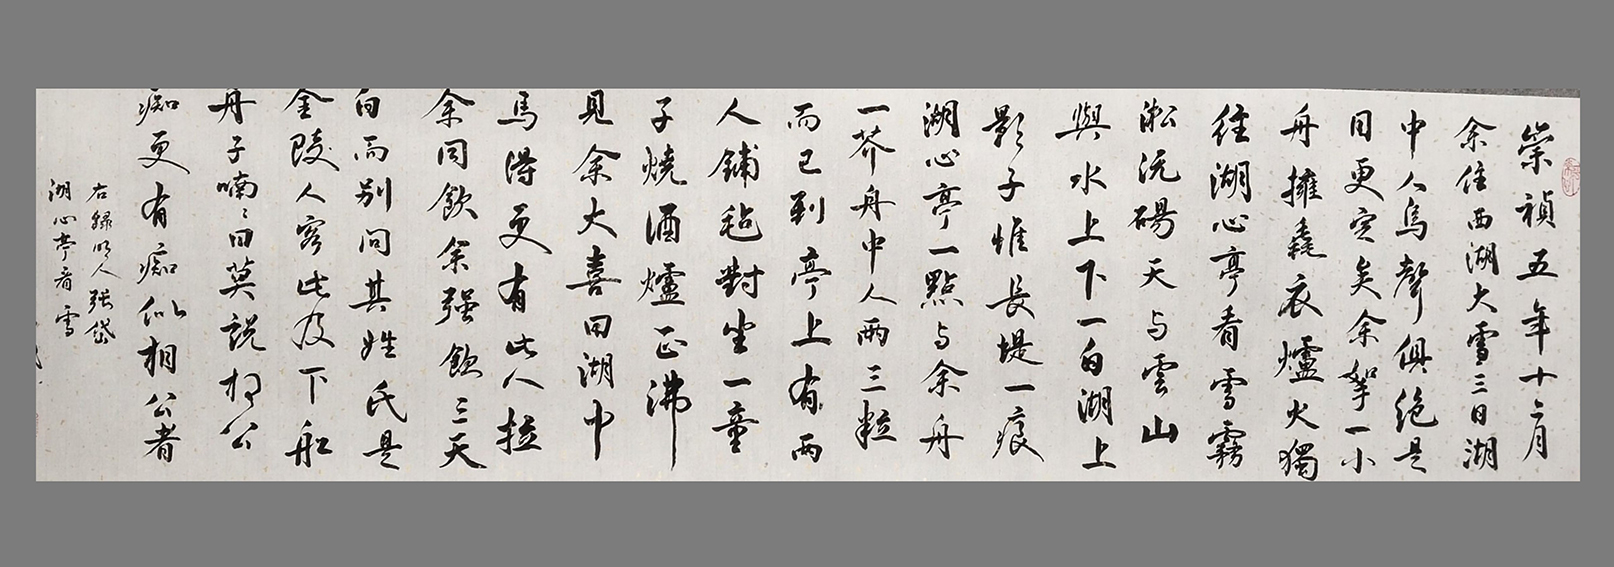 崇禎五年十二月
余住西湖大雪三日湖
中人鳥聲俱絕是
日更定矣余拏一小
舟擁毳衣爐火獨
往湖心亭看雪霧
淞沆碭天与雲山
與水上下一白湖上
影子惟長堤一痕
湖心亭一點与余舟
一芥舟中人兩三粒
而已到亭上有兩
人鋪氈對坐一童
子燒酒爐正沸
見余大喜曰湖中
焉得更有此人拉
余同飲余强飲三大
白而别問其姓氏是
金陵人客此及下船
舟子喃〻曰莫説相公
痴更有痴似相公者
右録明人張岱
湖心亭看雪